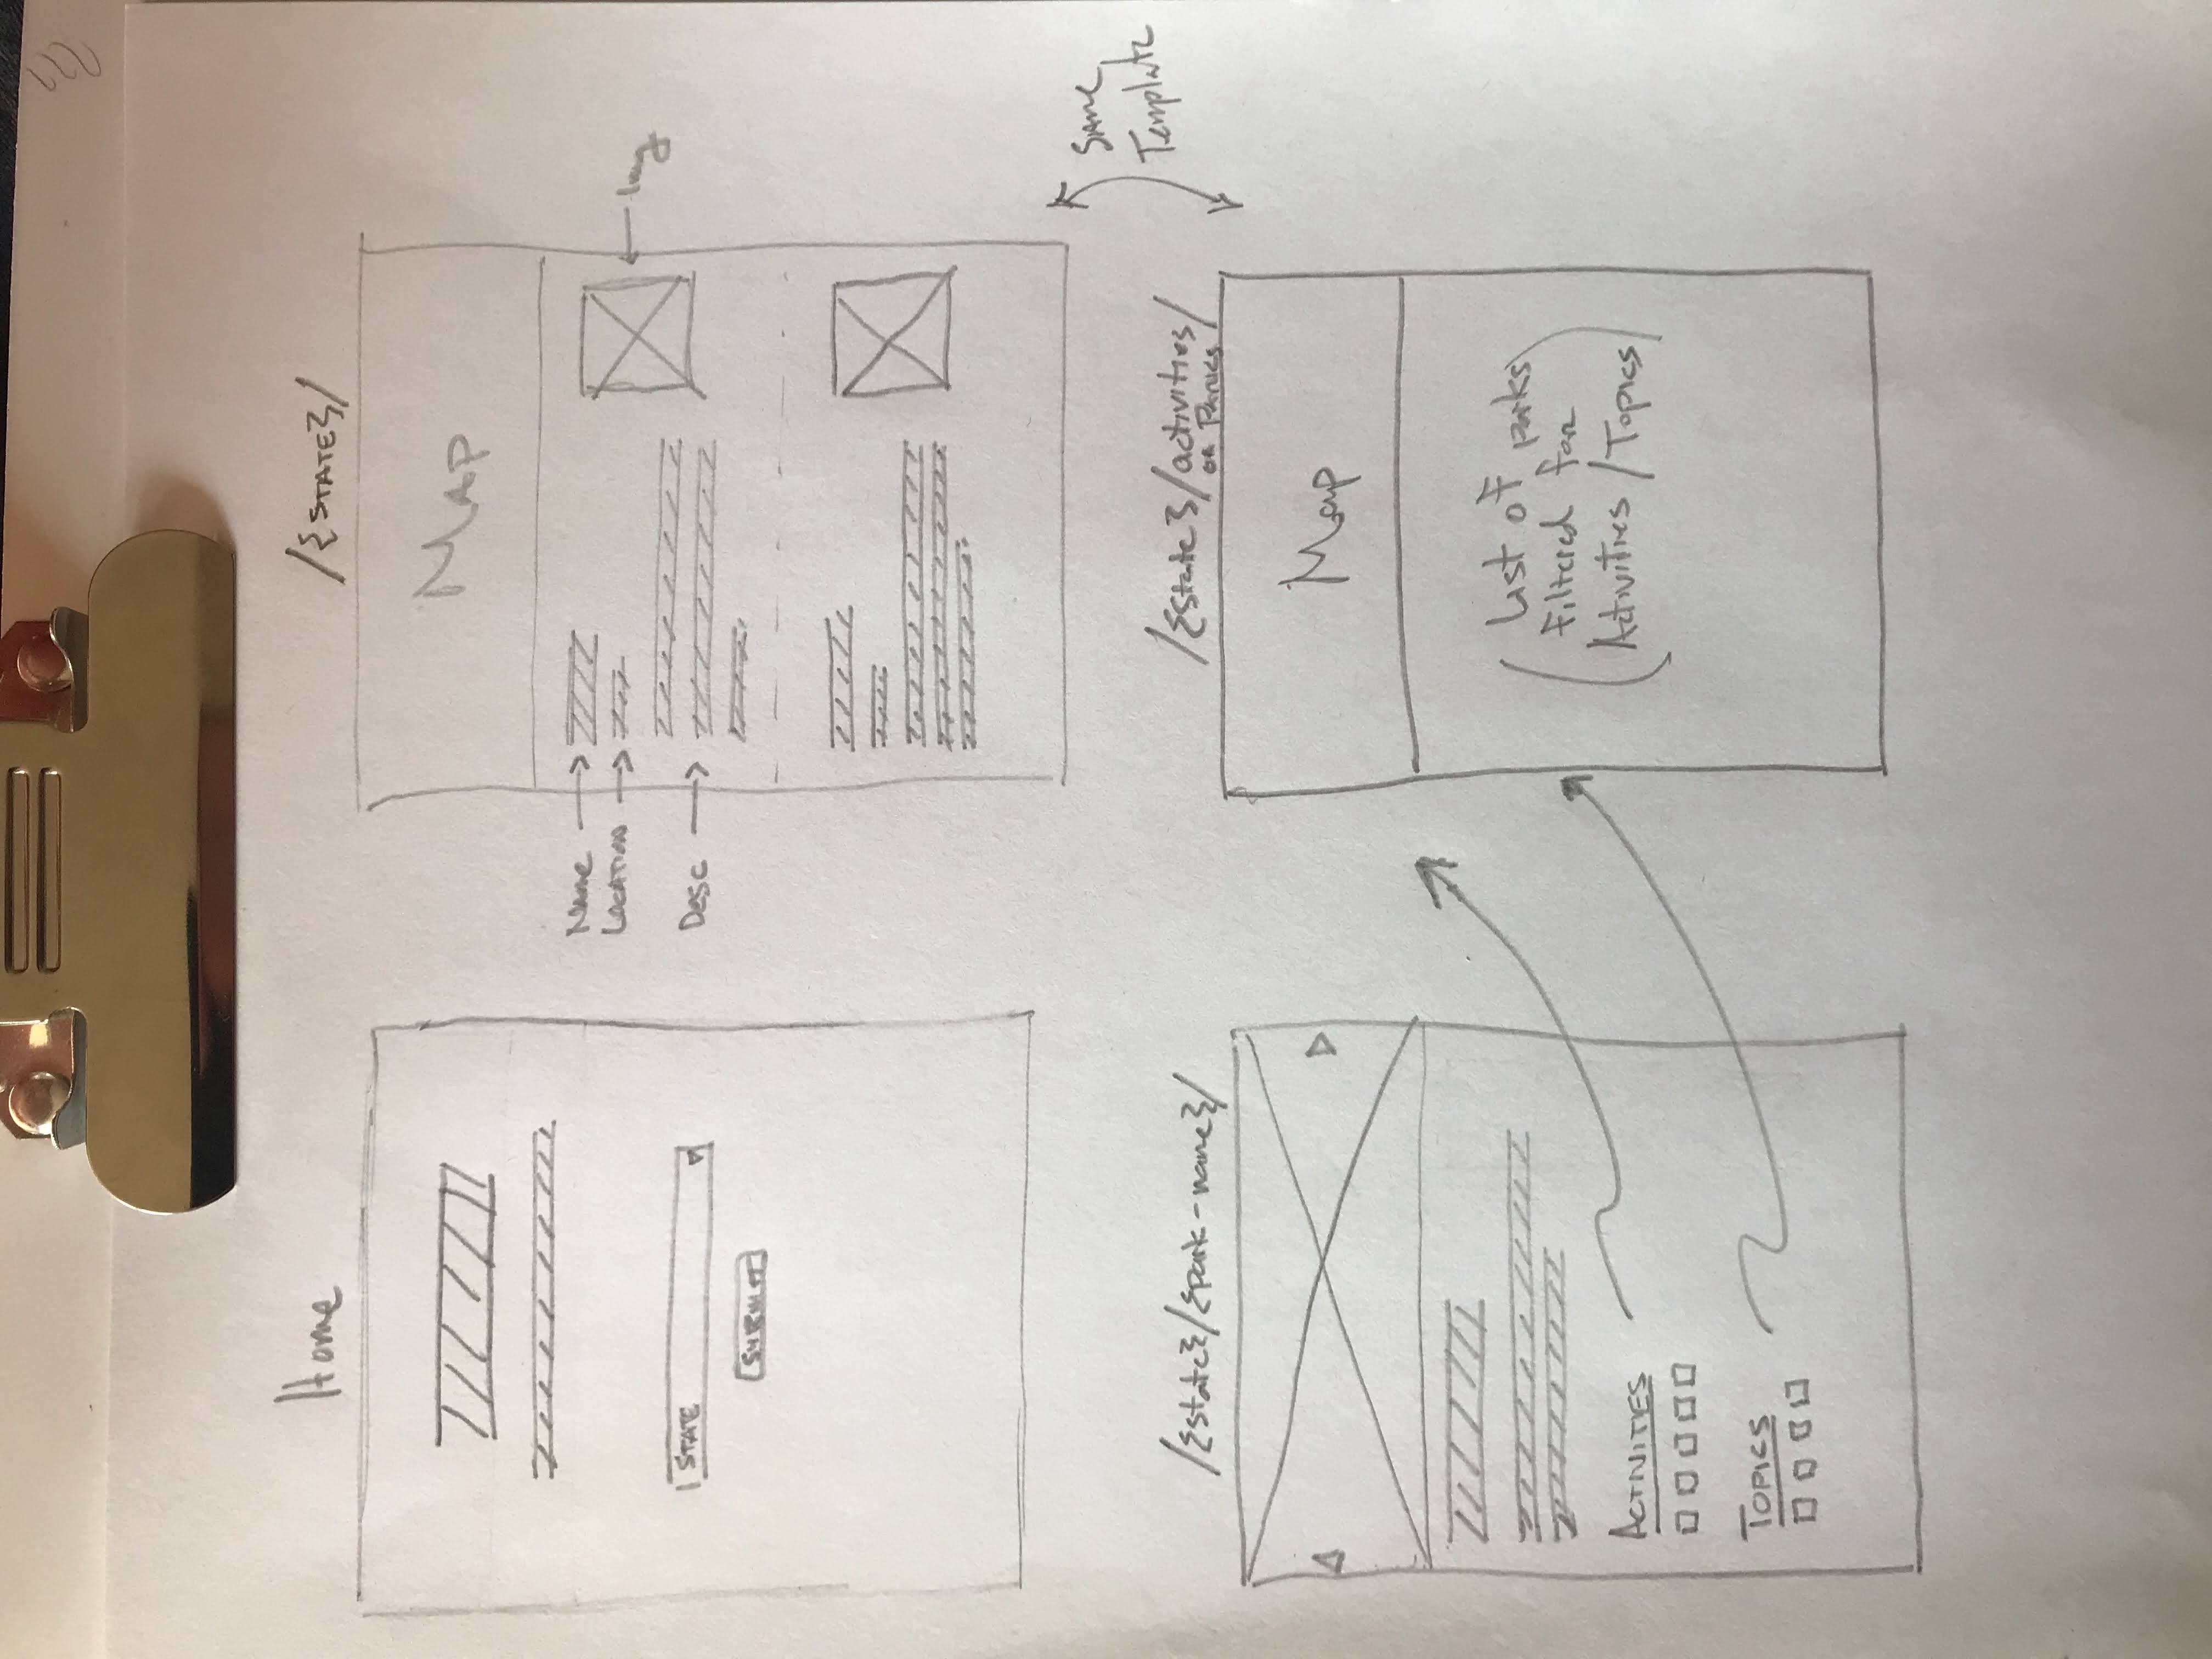 Home
STATE
SUBMIT
/{STATE}/
MAP
Name
LOCATION
Desc
Img
Same
Template
/{state}/{park-name}/
ACTIVITIES
TOPICS
/{state}/activities/
OR PARKS
Map
(List of parks
Filtered for
Activities/Topics)